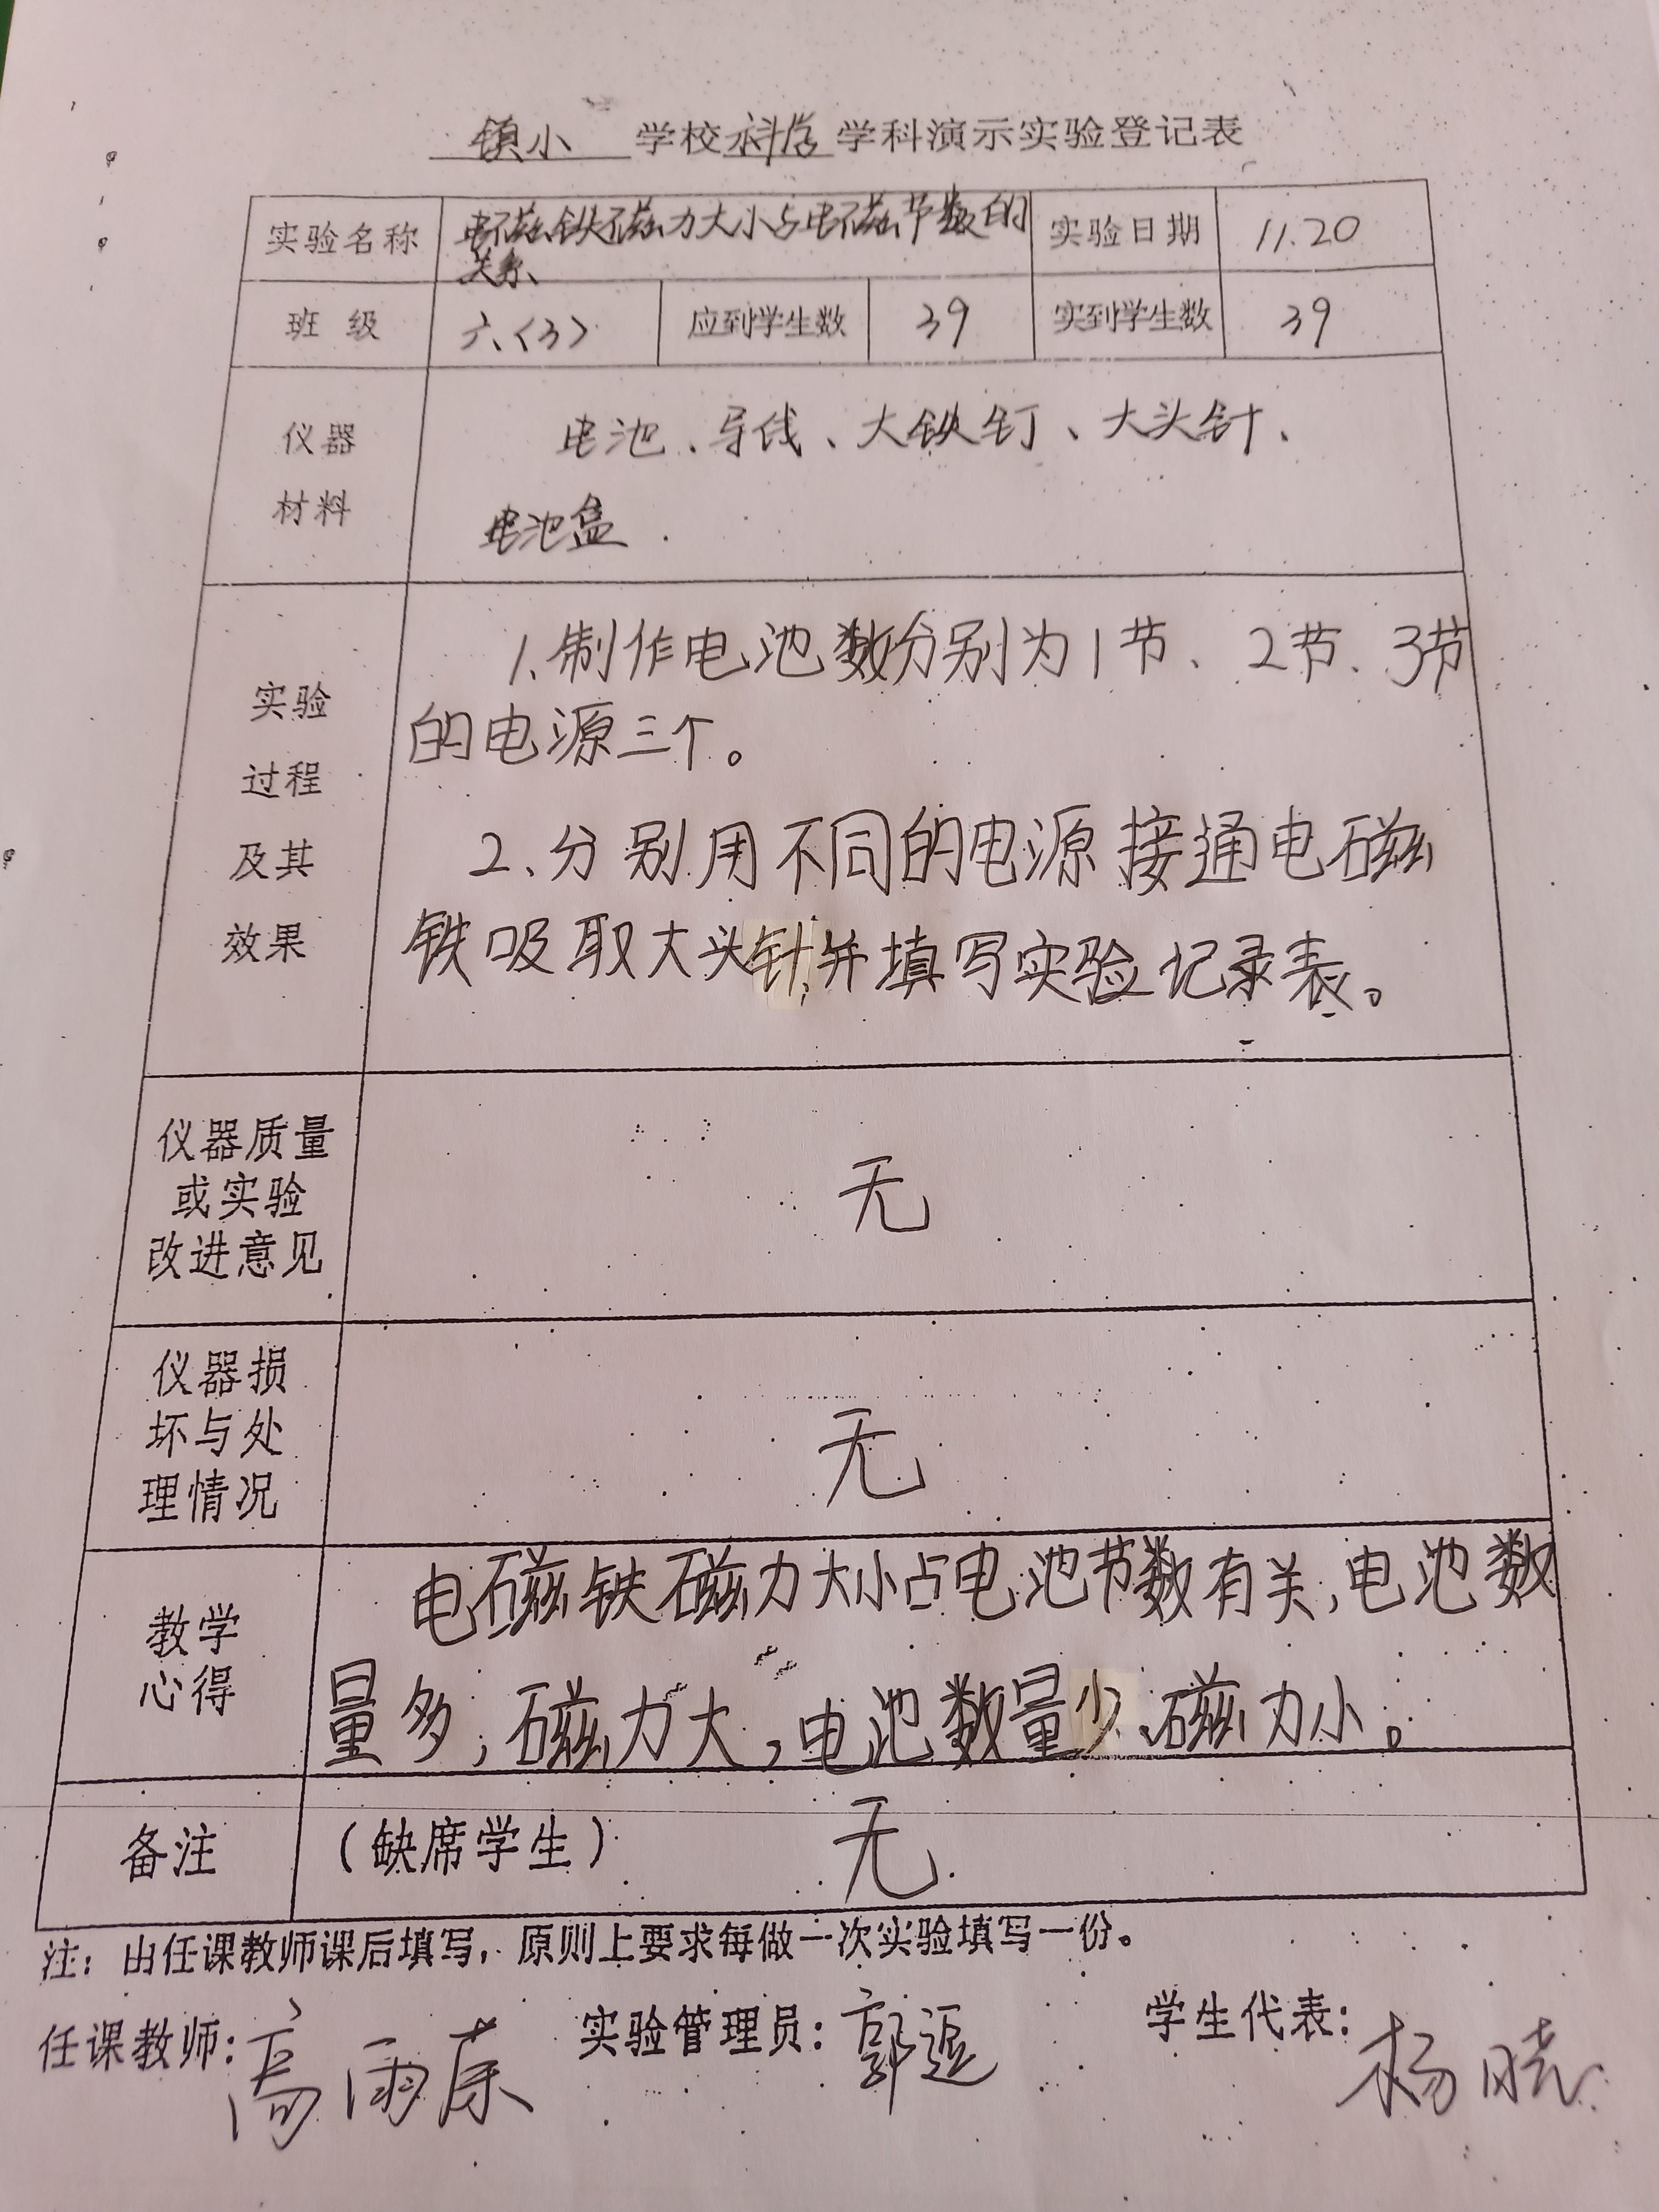 镇小 学校科学学科演示实验登记表
实验名称 电磁铁磁力大小与电磁节数的 实验日期 11.20
关系
班级 六〈3〉 应到学生数 39 实到学生数 39
仪器 电池、导线、大铁钉、大头针、
材料 电池盒.
实验 1、制作电池数分别为1节、2节、3节
过程 的电源三个。
及其 2、分别用不同的电源接通电磁
效果 铁吸取大头针,并填写实验记录表。
仪器质量
或实验 无
改进意见
仪器损
坏与处 无
理情况
教学 电磁铁磁力大小占电池节数有关,电池数
心得 量多,磁力大,电池数量少,磁力小。
备注 (缺席学生) 无.
注:由任课教师课后填写,原则上要求每做一次实验填写一份。
任课教师:高雨 实验管理员:郭 学生代表:杨晓